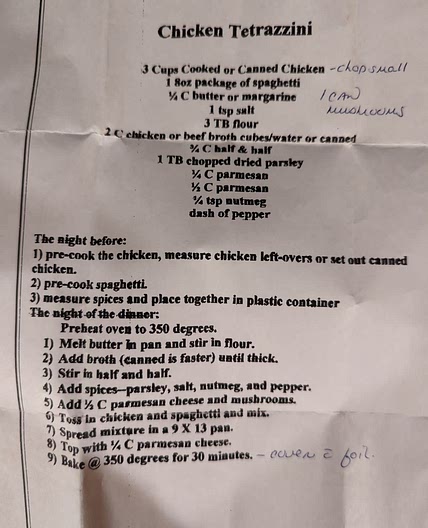 Chicken Tetrazzini
3 Cups Cooked or Canned Chicken - chop small
1 8oz package of spaghetti
¼ C butter or margarine
1 CAN
mushrooms
1 tsp salt
3 TB flour
2 C chicken or beef broth cubes/water or canned
¾ C half & half
1 TB chopped dried parsley
¼ C parmesan
⅓ C parmesan
¼ tsp nutmeg
dash of pepper
The night before:
1) pre-cook the chicken, measure chicken left-overs or set out canned
chicken.
2) pre-cook spaghetti.
3) measure spices and place together in plastic container
The night of the dinner:
Preheat oven to 350 degrees.
1) Melt butter in pan and stir in flour.
2) Add broth (canned is faster) until thick.
3) Stir in half and half.
4) Add spices--parsley, salt, nutmeg, and pepper.
5) Add ⅓ C parmesan cheese and mushrooms.
6) Toss in chicken and spaghetti and mix.
7) Spread mixture in a 9 X 13 pan.
8) Top with ¼ C parmesan cheese.
9) Bake @ 350 degrees for 30 minutes. - cover c̄ foil.